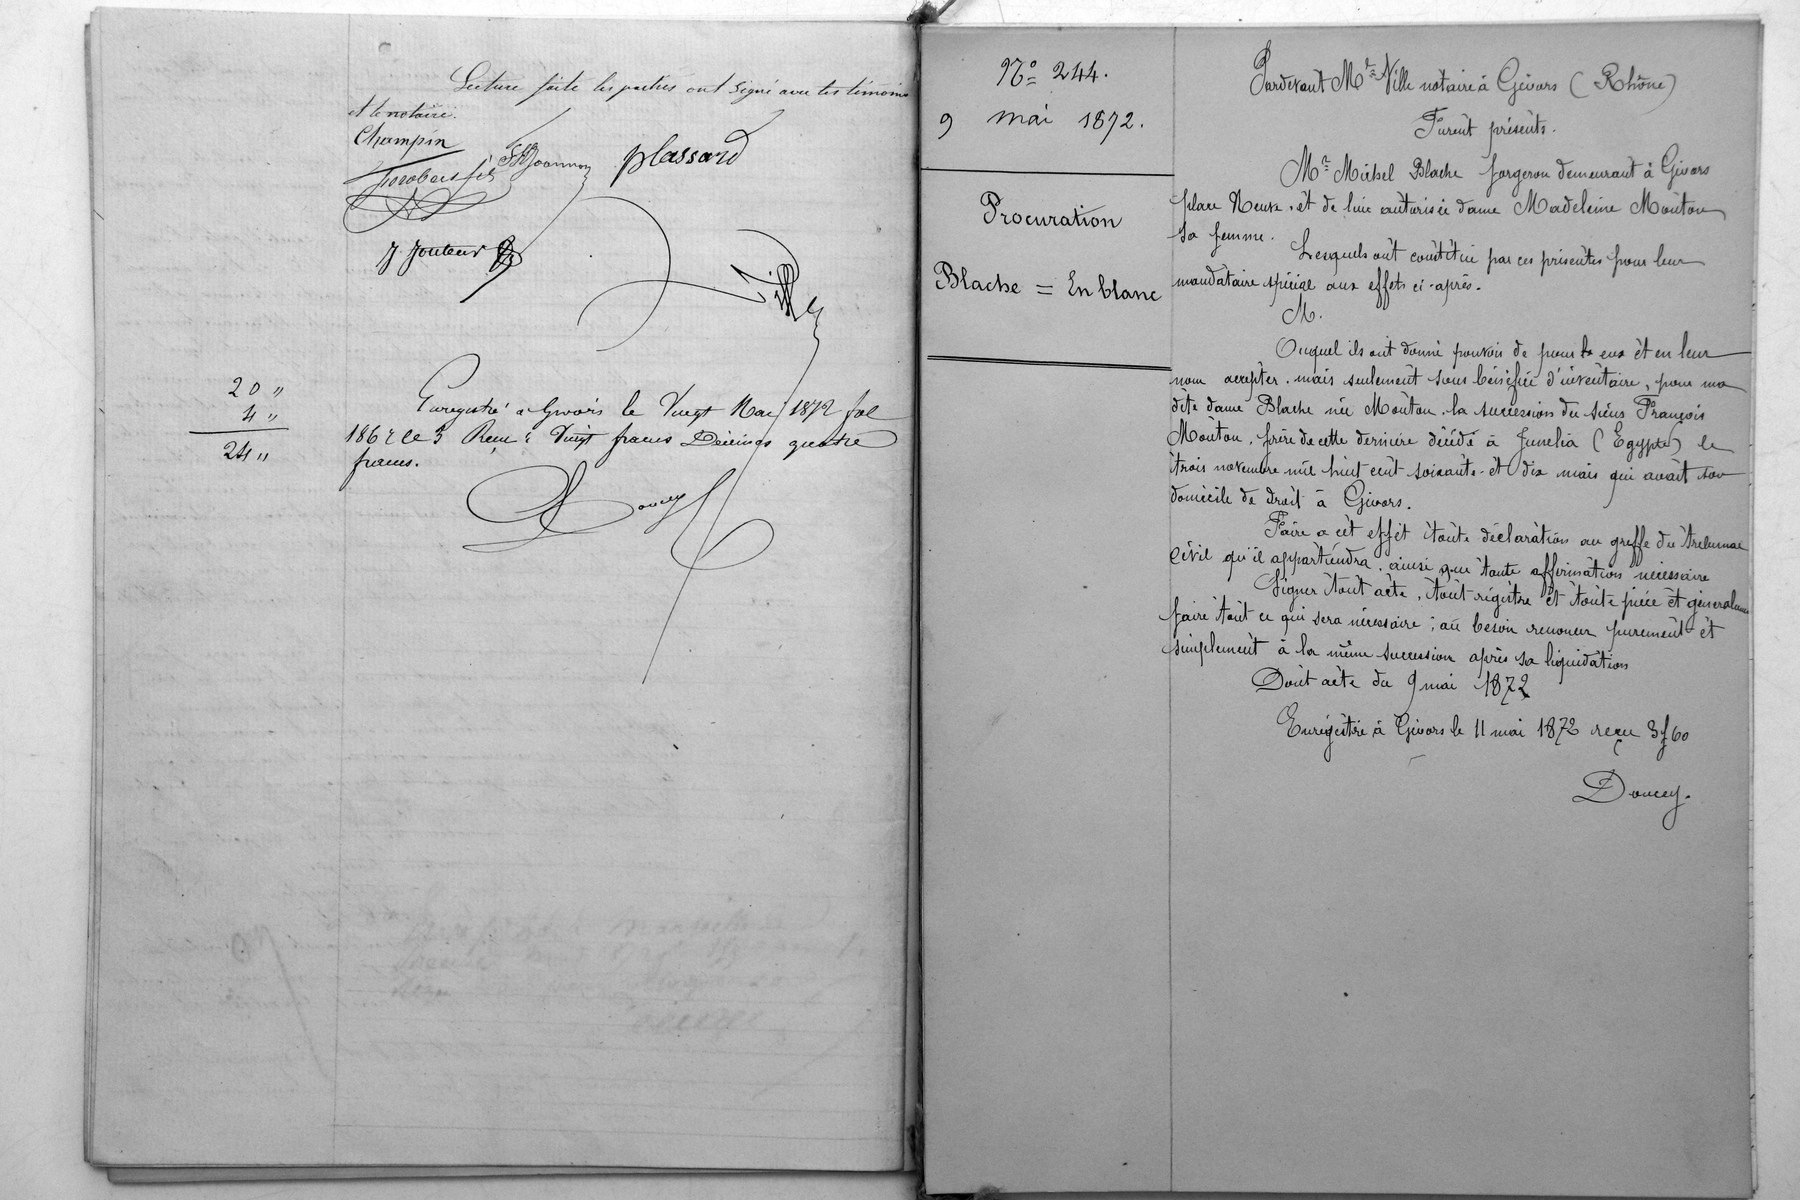 Lecture faite les parties ont signé avec les témoins
et le notaire.
Champin
plassard
J. Jouteur
Ville
20 "
4 "
24 "
Enregistré à Givors le Vingt Mai 1872 fol
186 r ce 3 Reçu : Vingt francs Décimes quatre
francs.
Doucey
N° 244.
9 mai 1872.
Procuration
Blache = En blanc
Pardevant Me Ville notaire à Givors (Rhône)
Furent présents.
Mr Michel Blache forgeron demeurant à Givors
place Neuve, et de lui autorisée dame Madeleine Mouton
sa femme.
Lesquels ont constitué par ces présentes pour leur
mandataire spécial aux effets ci-après.
M.
Auquel ils ont donné pouvoir de pour eux et en leur
nom accepter, mais seulement sous bénéfice d'inventaire, pour ma
dite dame Blache née Mouton, la succession du sieur François
Mouton, frère de cette dernière décédé à (Egypte) le
trois novembre mil huit cent soixante et dix mais qui avait son
domicile de droit à Givors.
Faire a cet effet toute déclaration au greffe du tribunal
civil qu'il appartiendra, ainsi que toute affirmation nécessaire
Signer tout acte, tout régistre et toute pièce et généralement
faire tout ce qui sera nécessaire ; au besoin renoncer purement et
simplement à la même succession après sa liquidation
Dont acte du 9 mai 1872
Enregistré à Givors le 11 mai 1872 reçu 3f60
Doucey.